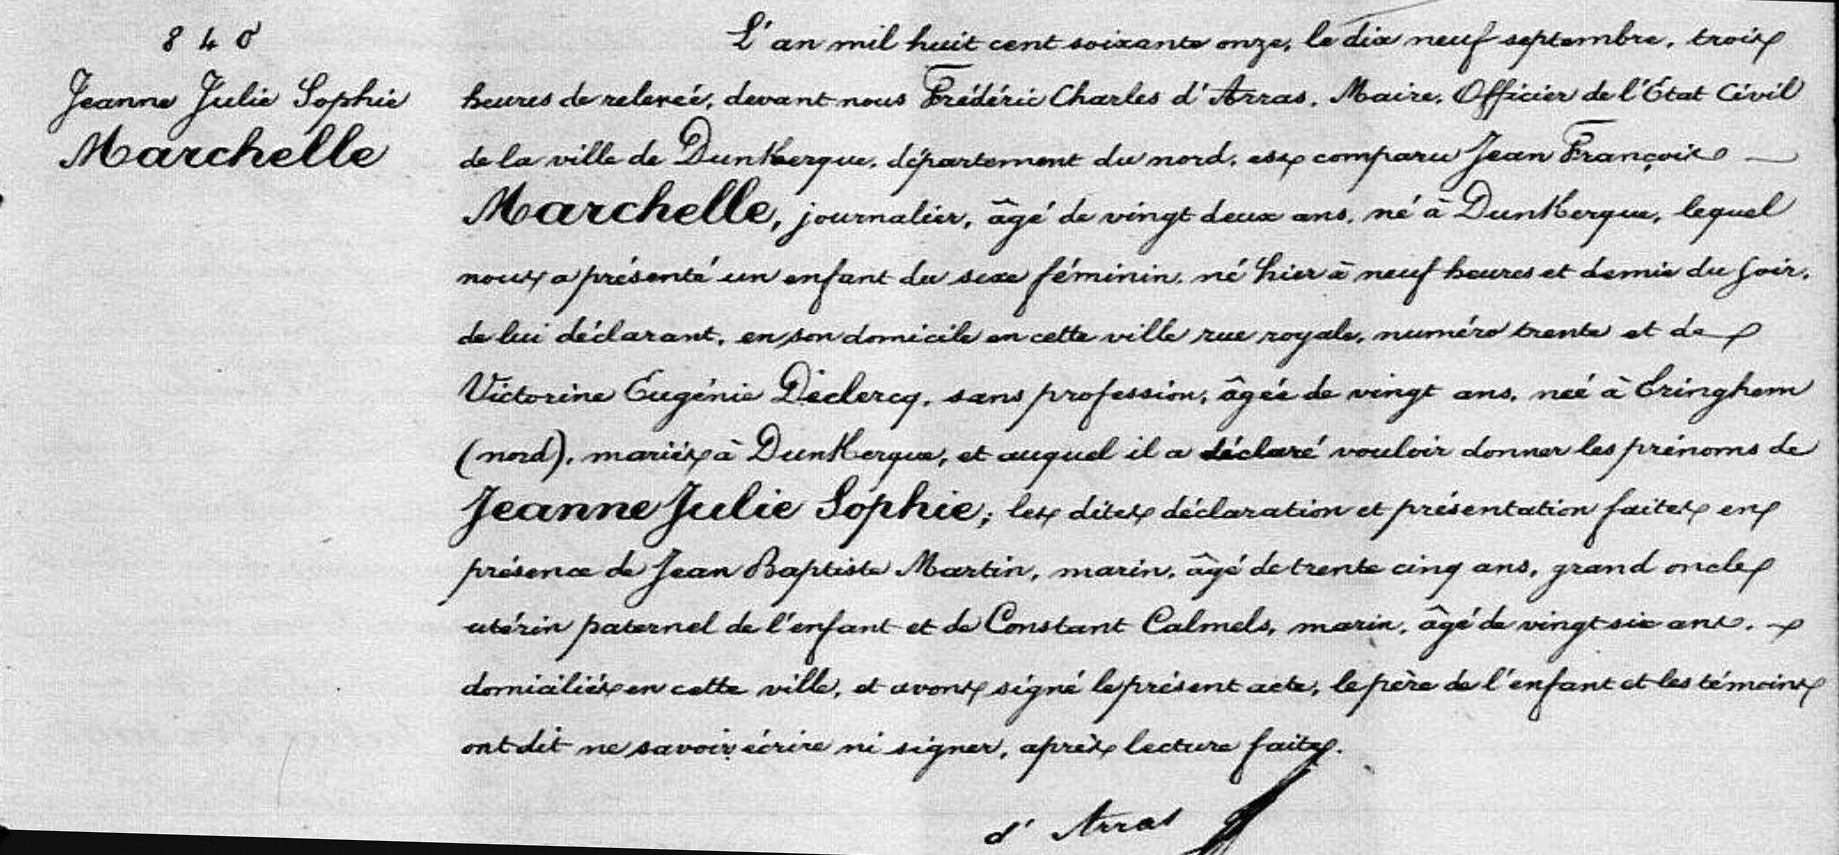 840
Jeanne Julie Sophie
Marchelle
L'an mil huit cent soixante onze, le dix neuf septembre, trois
heures de relevée, devant nous Frédéric Charles d'Arras, Maire, Officier de l'Etat Civil
de la ville de Dunkerque, département du nord, est comparu Jean François
Marchelle, journalier, âgé de vingt deux ans, né à Dunkerque, lequel
nous a présenté un enfant du sexe féminin, né hier à neuf heures et demie du soir,
de lui déclarant, en son domicile en cette ville rue royale, numéro trente et de
Victorine Eugénie Déclercq, sans profession, âgée de vingt ans, née à Eringhem
(nord), mariés à Dunkerque, et auquel il a déclaré vouloir donner les prénoms de
Jeanne Julie Sophie; les dites déclaration et présentation faites en
présence de Jean Baptiste Martin, marin, âgé de trente cinq ans, grand oncle
utérin paternel de l'enfant et de Constant Calmels, marin, âgé de vingt six ans,
domiciliés en cette ville, et avons signé le présent acte, le père de l'enfant et les témoins
ont dit ne savoir écrire ni signer, après lecture faite.
d'Arras